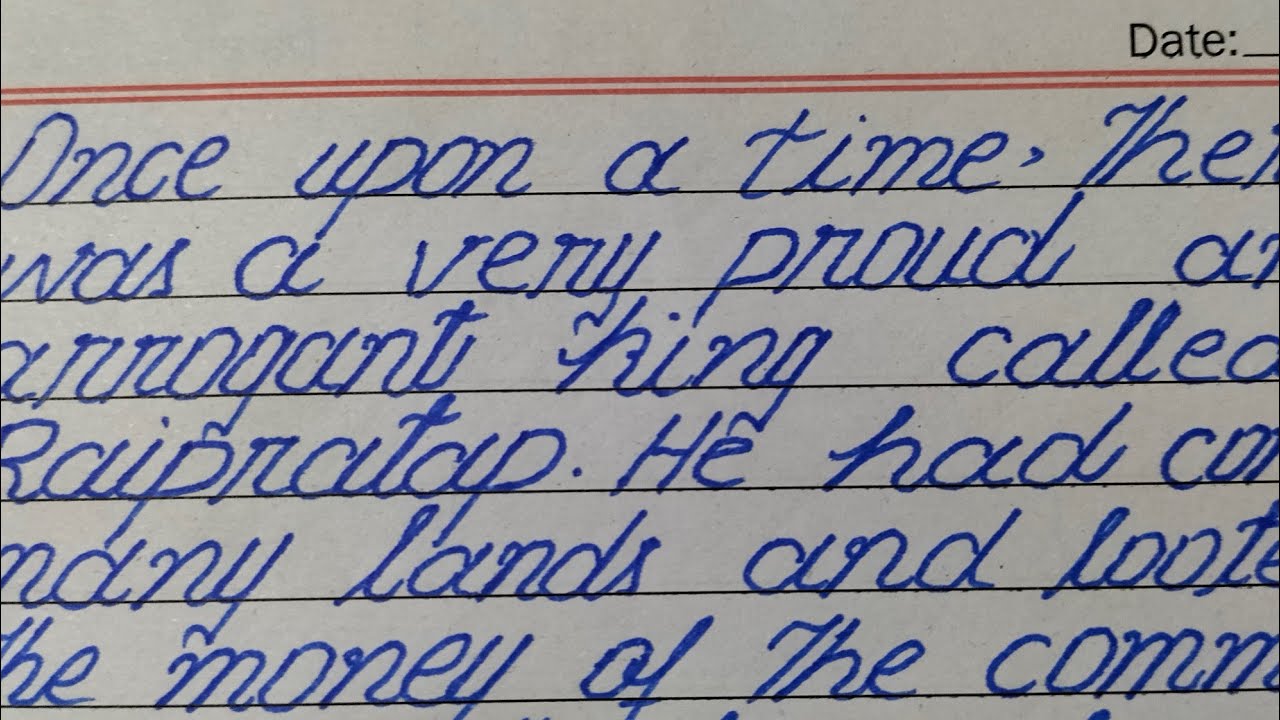 Date:
Once upon a time, Ther
was a very proud an
arrogant king called
Raipratap. He had con
many lands and loote
the money of the comm